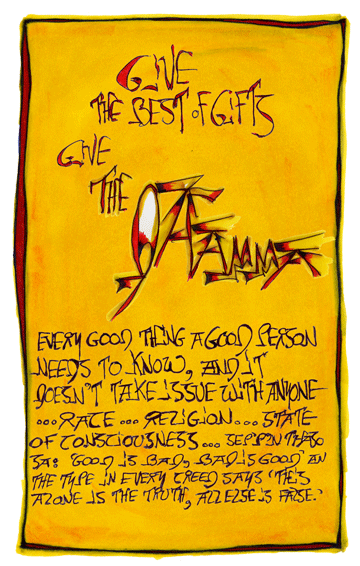 GIVE
THE BEST OF GIFTS
GIVE
THE
DHAMMA
EVERY GOOD THING A GOOD PERSON
NEEDS TO KNOW, AND IT
DOESN'T TAKE ISSUE WITH ANYONE
...RACE ... RELIGION ... STATE
OF CONSCIOUSNESS ...
SA: 'GOOD IS BAD, BAD IS GOOD' AN
THE TYPE IN EVERY CREED SAYS 'THIS
ALONE IS THE TRUTH, ALL ELSE IS FALSE.'